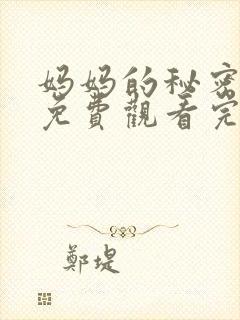 妈妈的秘密
免費觀看完
鄭堤